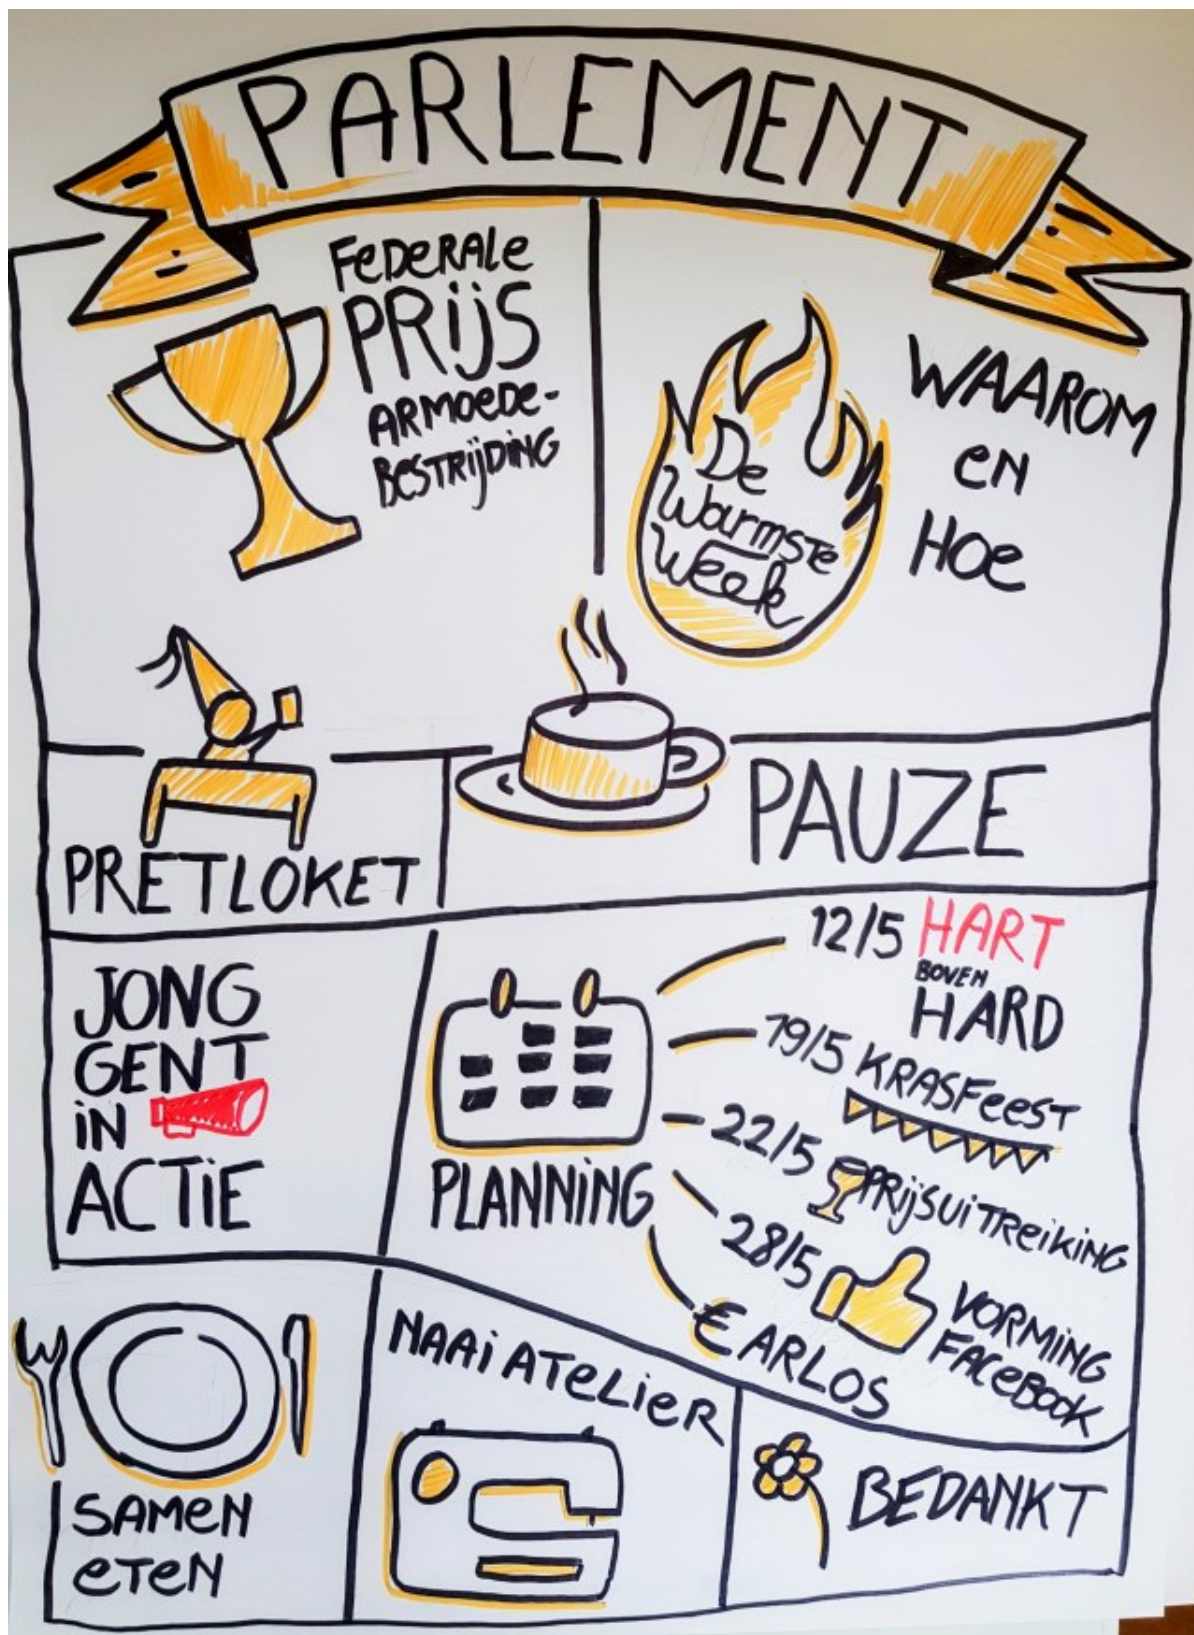 PARLEMENT
FEDERALE
PRIJS
ARMOEDE-
BESTRIJDING
De
Warmste
Week
WAAROM
EN
HOE
PRETLOKET
PAUZE
JONG
GENT
IN
ACTIE
PLANNING
12/5 HART
BOVEN
HARD
19/5 KRASFEEST
22/5 PRIJSUITREIKING
28/5 VORMING
FACEBOOK
€ARLOS
SAMEN
ETEN
NAAIATELIER
BEDANKT